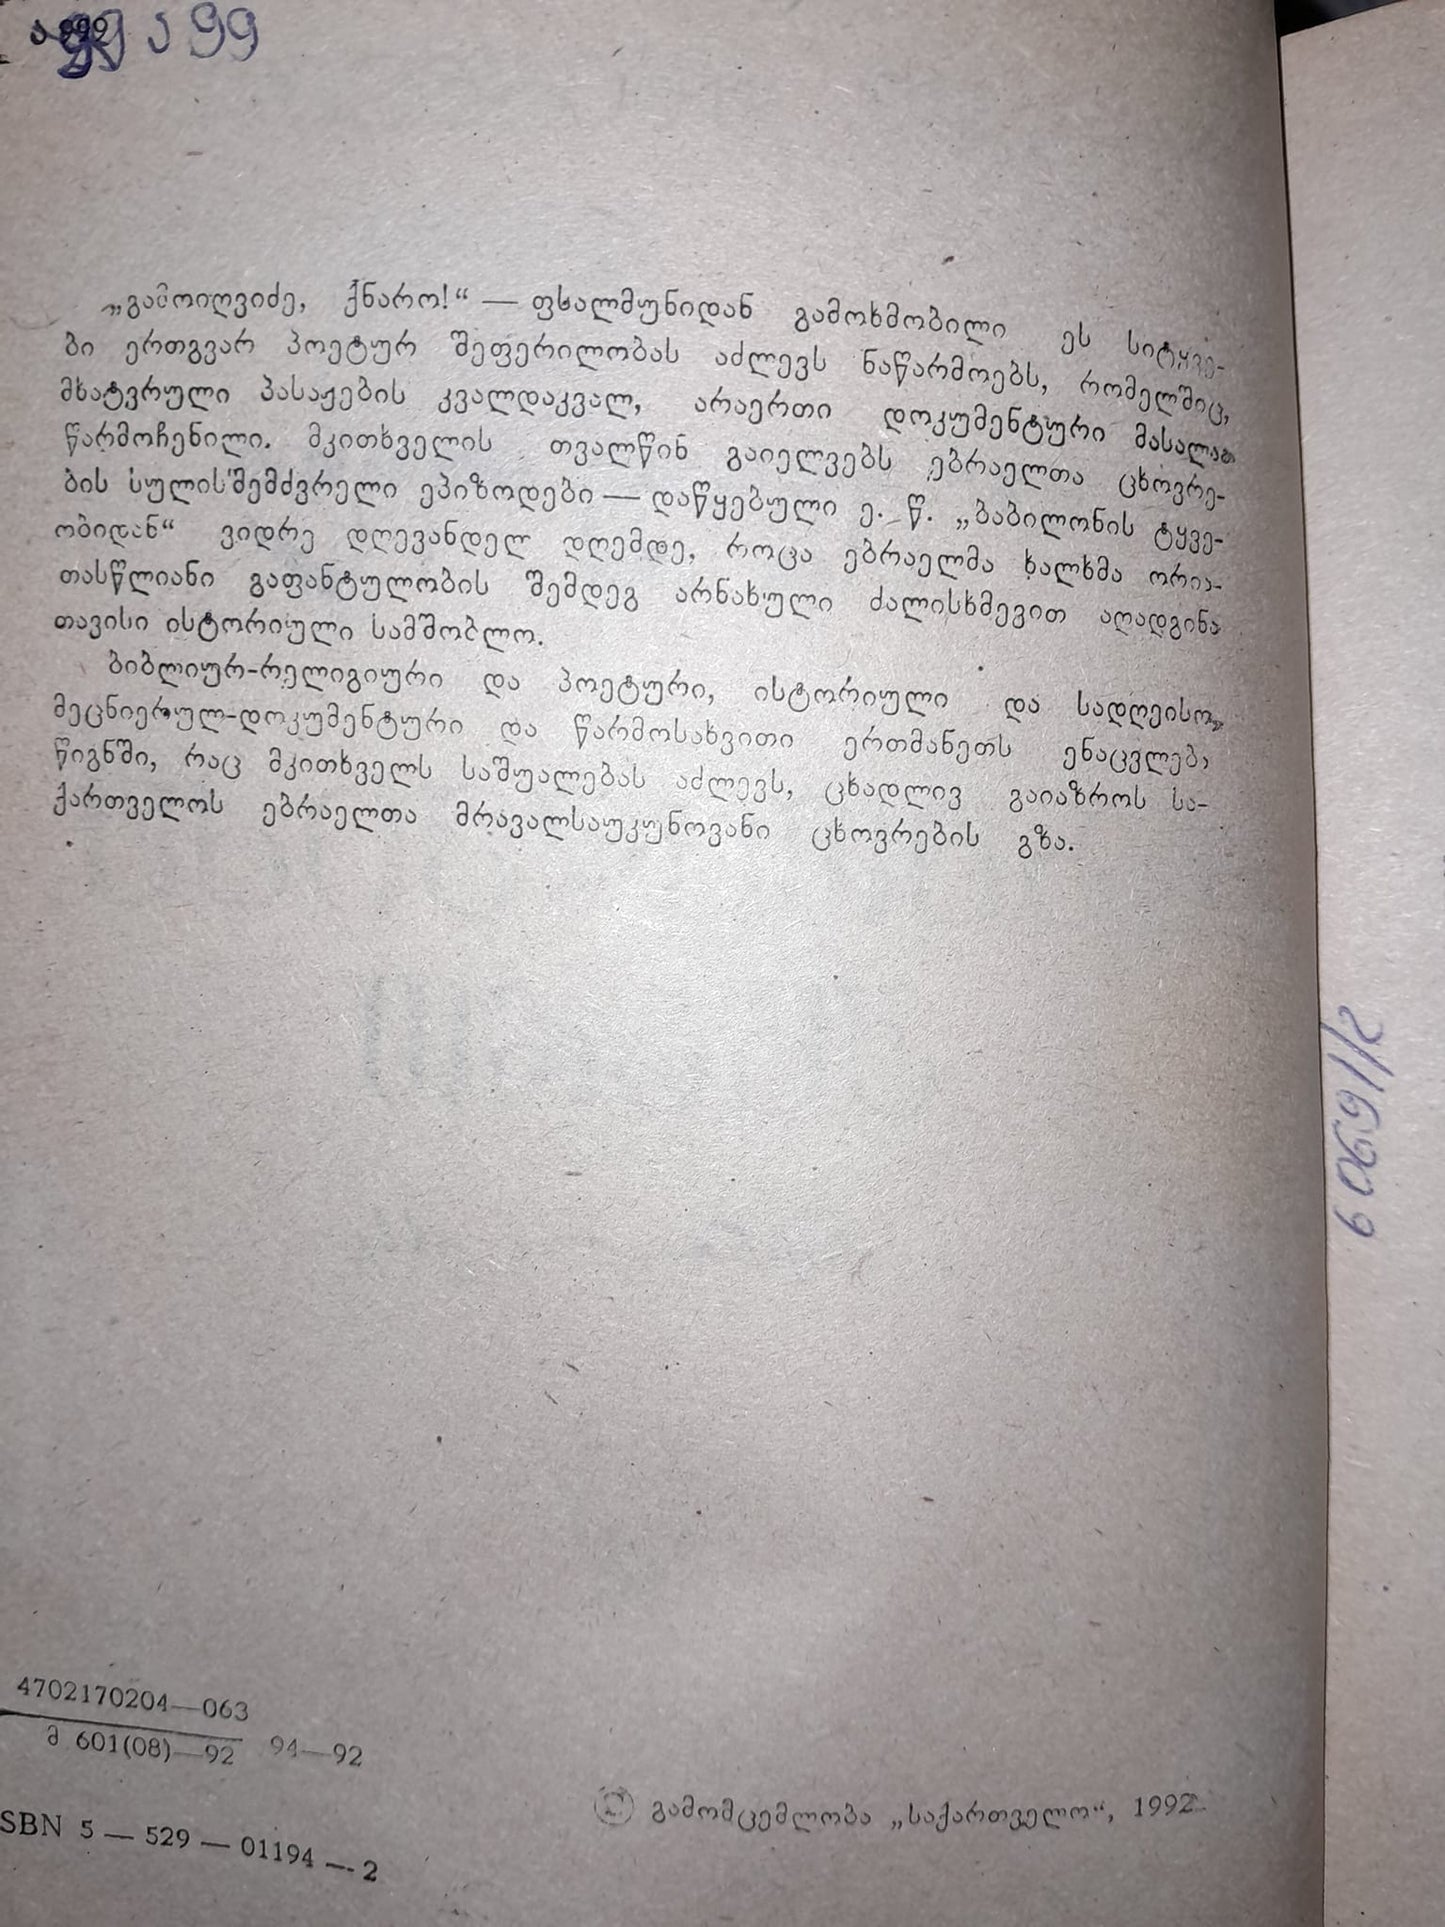 ა 99
„გამოიღვიძე, ქნარო!“ — ფსალმუნიდან გამოხმობილი ეს სიტყვე-
ბი ერთგვარ პოეტურ შეფერილობას აძლევს ნაწარმოებს, რომელშიც,
მხატვრული პასაჟების კვალდაკვალ, არაერთი დოკუმენტური მასალაა
წარმოჩენილი. მკითხველის თვალწინ გაიელვებს ებრაელთა ცხოვრე-
ბის სულისშემძვრელი ეპიზოდები — დაწყებული ე. წ. „ბაბილონის ტყვე-
ობიდან“ ვიდრე დღევანდელ დღემდე, როცა ებრაელმა ხალხმა ორია-
თასწლიანი გაფანტულობის შემდეგ არნახული ძალისხმევით აღადგინა
თავისი ისტორიული სამშობლო.
ბიბლიურ-რელიგიური და პოეტური, ისტორიული და სადღეისო,
მეცნიერულ-დოკუმენტური და წარმოსახვითი ერთმანეთს ენაცვლებ,
წიგნში, რაც მკითხველს საშუალებას აძლევს, ცხადლივ გაიაზროს სა-
ქართველოს ებრაელთა მრავალსაუკუნოვანი ცხოვრების გზა.
4702170204—063
მ 601(08)—92 94—92
SBN 5 — 529 — 01194 — 2
© გამომცემლობა „საქართველო“, 1992